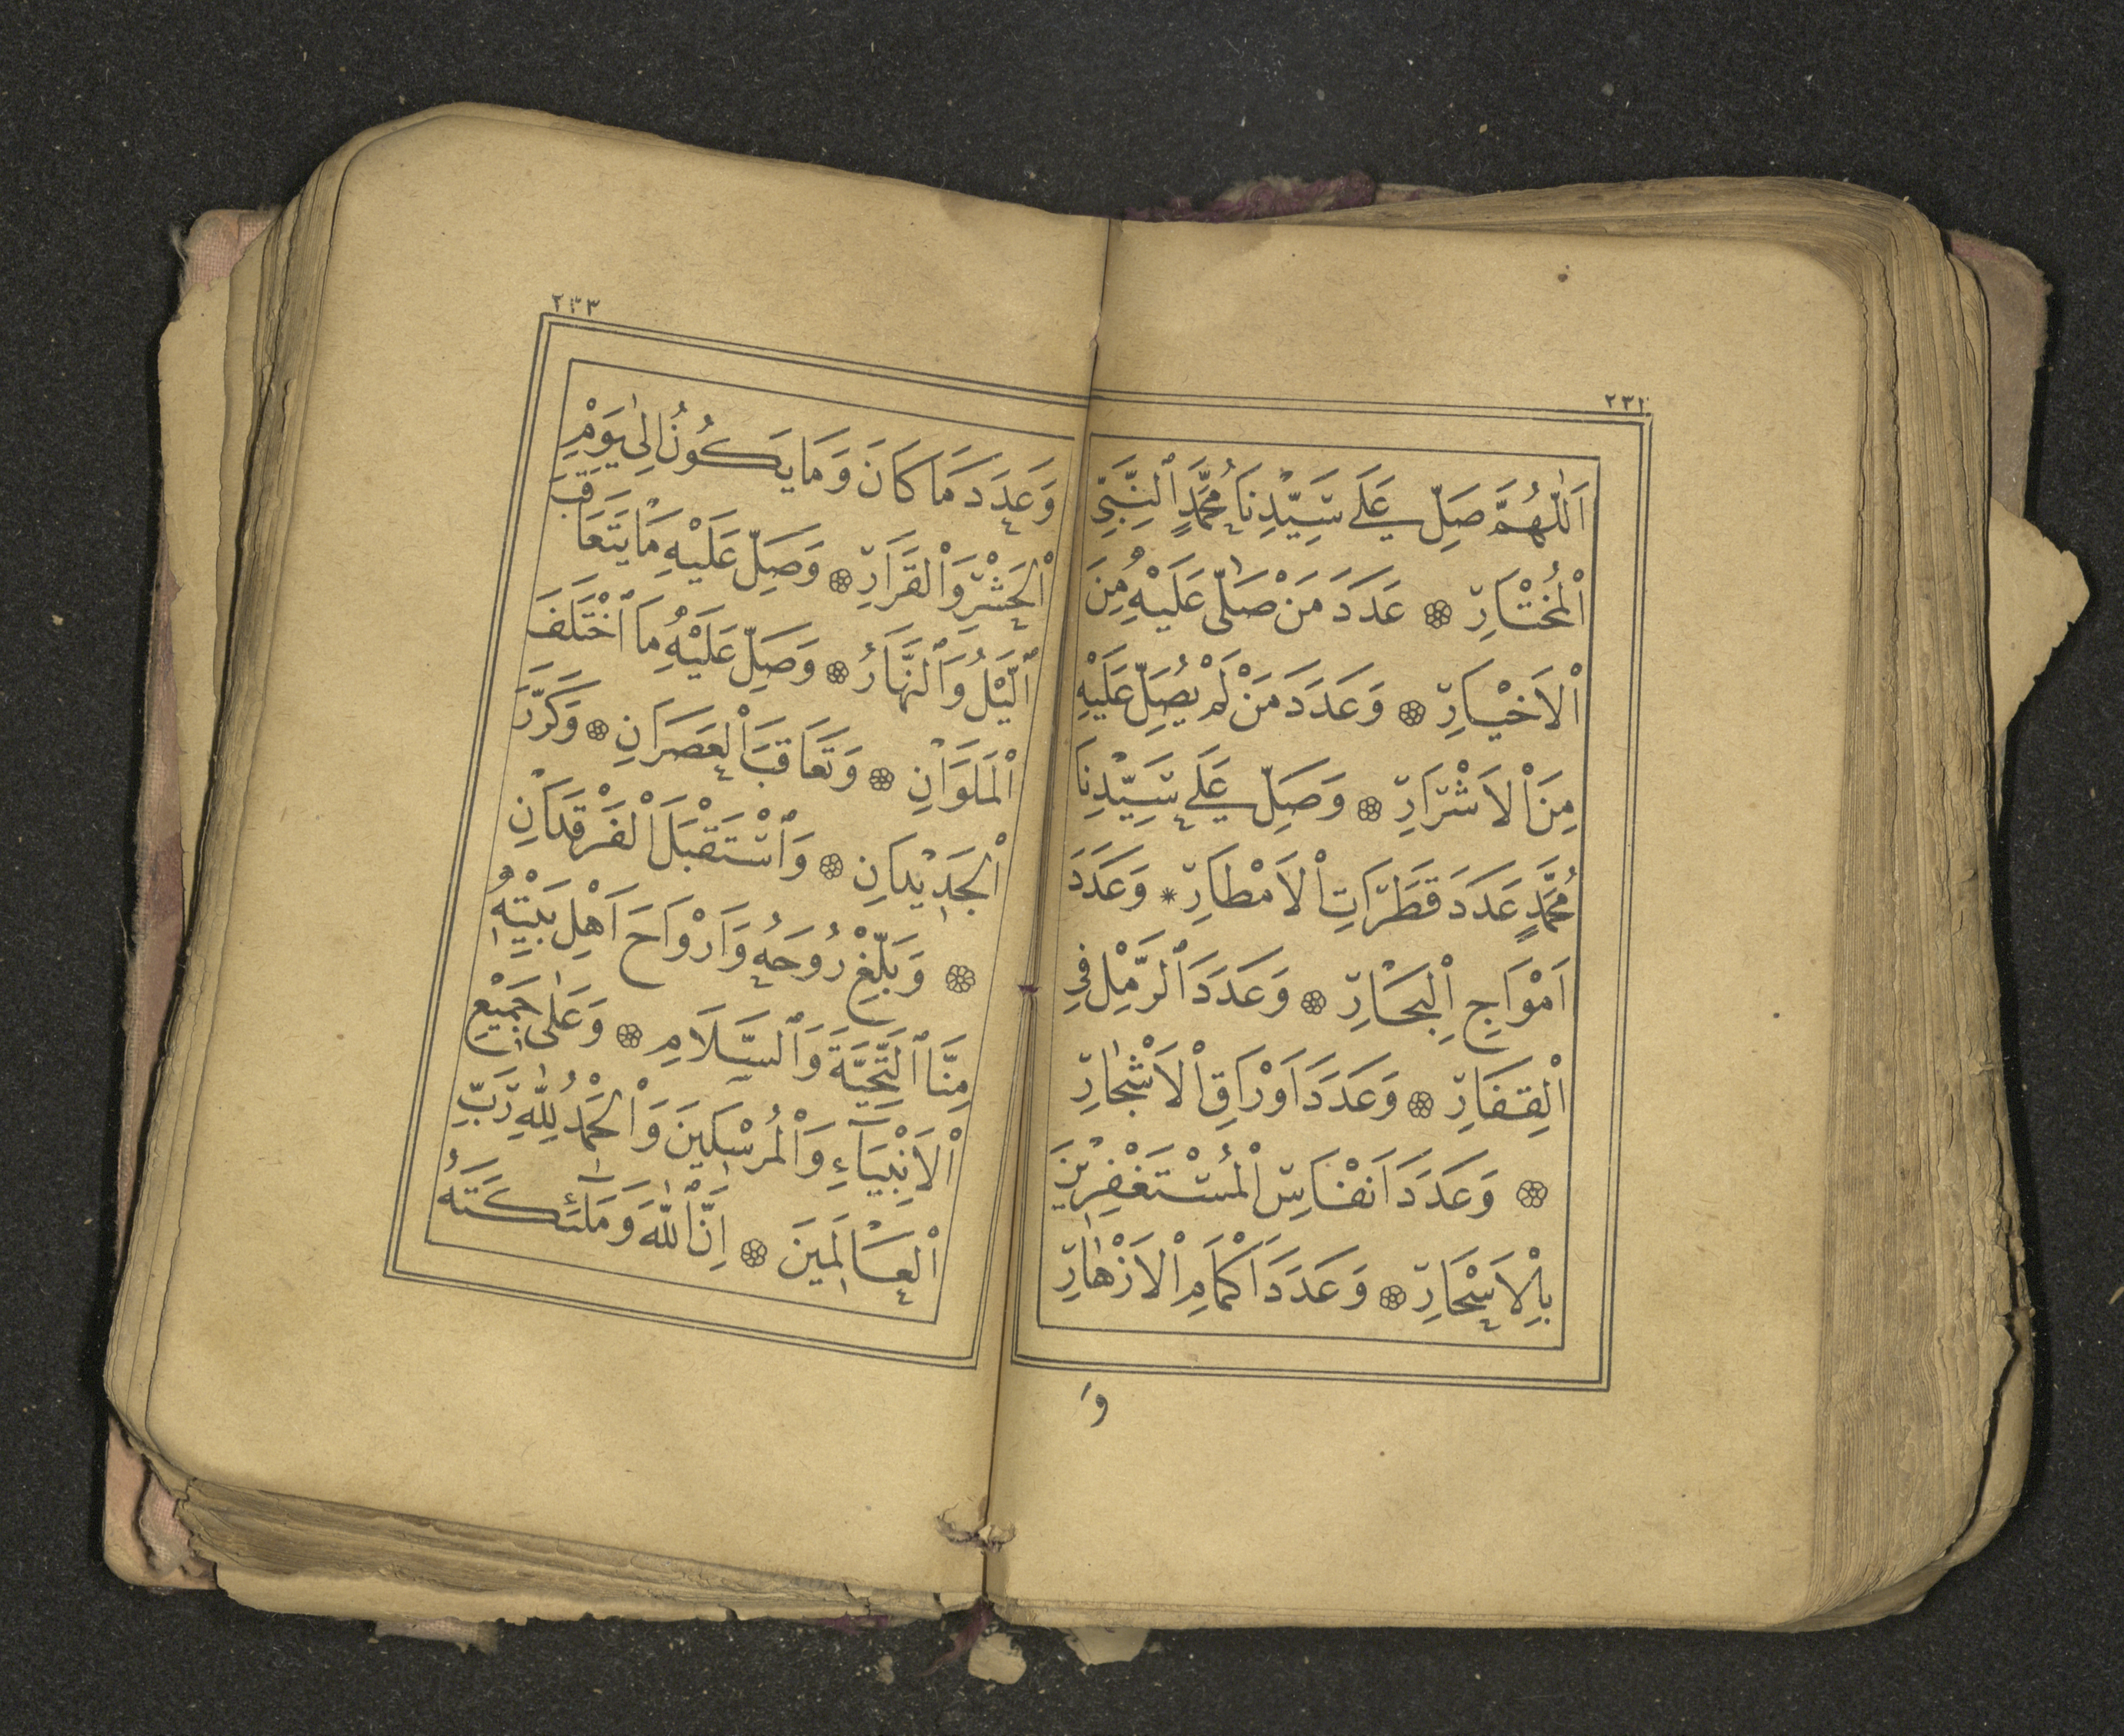 ٢٣٢
اَللّٰهُمَّ صَلِّ عَلَي سَيِّدِنَا مُحَمَّدٍ ٱلنَّبِيِّ
ٱلْمُخْتَارِ ۞ عَدَدَ مَنْ صَلّٰى عَلَيْهِ مِنَ
ٱلْاَخْيَارِ ۞ وَعَدَدَ مَنْ لَمْ يُصَلِّ عَلَيْهِ
مِنَ ٱلْاَشْرَارِ ۞ وَصَلِّ عَلَي سَيِّدِنَا
مُحَمَّدٍ عَدَدَ قَطَرَاتِ ٱلْاَمْطَارِ * وَعَدَدَ
اَمْوَاجِ ٱلْبِحَارِ ۞ وَعَدَدَ ٱلرَّمْلِ فِي
ٱلْقِفَارِ ۞ وَعَدَدَ اَوْرَاقِ ٱلْاَشْجَارِ
۞ وَعَدَدَ اَنْفَاسِ ٱلْمُسْتَغْفِرِينَ
بِٱلْاَسْحَارِ ۞ وَعَدَدَ اَكْمَامِ ٱلْاَزْهَارِ
وَ
٢٣٣
وَعَدَدَ مَا كَانَ وَمَا يَكُونُ اِلٰى يَوْمِ
ٱلْحَشْرِ وَٱلْقَرَارِ ۞ وَصَلِّ عَلَيْهِ مَا يَتَعَاقَبَ
ٱلَّيْلُ وَٱلنَّهَارُ ۞ وَصَلِّ عَلَيْهِ مَا ٱخْتَلَفَ
ٱلْمَلَوَانِ ۞ وَتَعَاقَبَ ٱلْعَصَرَانِ ۞ وَكَرَّرَ
ٱلْجَدِيدَانِ ۞ وَٱسْتَقْبَلَ ٱلْفَرْقَدَانِ
۞ وَبَلِّغْ رُوحَهُ وَاَرْوَاحَ اَهْلِ بَيْتِهِ
مِنَّا ٱلتَّحِيَّةَ وَٱلسَّلَامِ ۞ وَعَلٰى جَمِيعِ
ٱلْاَنْبِيَآءِ وَٱلْمُرْسَلِينَ وَٱلْحَمْدُ لِلّٰهِ رَبِّ
ٱلْعَالَمِينَ ۞ اِنَّ ٱللّٰهَ وَمَلٰٓئِكَتَهُ